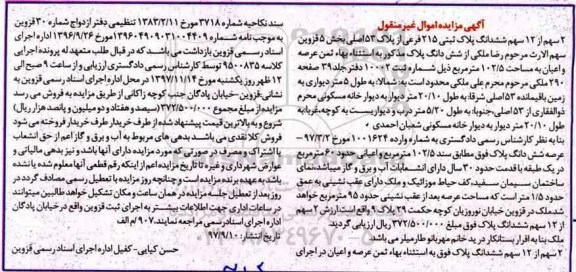 آگهی مزایده اموال غیر منقول
۲ سهم از ۱۲ سهم ششدانگ پلاک ثبتی ۲۱۵ فرعی از پلاک ۵۳ اصلی بخش ۵ قزوین
سهم الارث مرحوم رضا ملکی از شش دانگ پلاک مذکور به استثناء بهاء ثمن عرصه
و اعیان به مساحت ۱۰۲/۵ مترمربع ذیل شماره ثبت ۱۰۰۰۲ دفتر جلد ۳۹ صفحه
۲۹۰ ملکی مرحوم محرم علی ملکی محدود است به: شمالا: به طول ۵ متر دیواری به
زمین باقیمانده ۵۳ اصلی شرقا: به طول ۲۰/۱۰ متر دیوار به دیوار خانه مسکونی محرم
ذوالفقاری از ۵۳ اصلی، جنوبا: به طول ۵/۲۰ متر درب و دیواریست به کوچه، غربا: به
طول ۲۰/۱۰ متر دیوار به دیوار خانه مسکونی شعبان احمدی
بنا به نظر کارشناس رسمی دادگستری به شماره وارده ۱۰۰۱۶۲۴ مورخ ۹۷/۳/۲-
عرصه شش دانگ پلاک فوق مطابق سند ۱۰۲/۵ مترمربع و اعیانی حدود ۶۰ مترمربع
در یک طبقه با قدمت حدود ۳۰ سال دارای انشعابات آب و برق و گاز میباشد، نمای
ساختمان سیمان سفید، کف حیاط موزائیک و ملک دارای عقب نشینی به عمق
حدود ۱/۵ متر است که مساحت عرصه بعد از عقب نشینی حدود ۹۵ مترمربع خواهد
شد. ملک در قزوین خیابان نوروزیان کوچه حکمت ۲۹ پلاک ۹ واقع است ارزش ۲ سهم
از ۱۲ سهم ششدانگ پلاک فوق مبلغ ۳۷۲/۵۰۰/۰۰۰ ریال ارزیابی گردید.
ملک بنا به اقرار بستانکار در ید خانم مهربانو طارملر می باشد
۲ سهم از ۱۲ سهم ششدانگ پلاک فوق به استثناء بهاء ثمن عرصه و اعیان در اجرای
سند نکاحیه شماره ۳۷۱۸ مورخ ۱۳۸۳/۲/۱۱ تنظیمی دفتر ازدواج شماره ۳۰ قزوین
به موجب نامه شماره ۱۳۹۶۰۴۹۰۹۰۳۱۰۰۴۴۰۹ مورخ ۱۳۹۶/۹/۲۶ اداره اجرای
اسناد رسمی قزوین بازداشت می باشد که در قبال طلب متعهد له پرونده اجرایی
کلاسه ۹۵۰۰۸۳۵ توسط کارشناس رسمی دادگستری ارزیابی و از ساعت ۹ صبح الی
۱۲ ظهر روز یکشنبه مورخ ۱۳۹۷/۱۱/۱۴ در محل اداره اجرای اسناد رسمی قزوین به
نشانی: قزوین-خیابان پادگان جنب کوچه زاکانی از طریق مزایده به فروش می رسد
مزایده از مبلغ مجموع ۳۷۲/۵۰۰/۰۰۰ (سیصد و هفتاد و دو میلیون و پانصد هزار ریال)
شروع و به بالاترین قیمت پیشنهاد شده از طرف خریدار طرف خریدار فروخته می شود
فروش کلا نقدی می باشد. بدهی های مربوط به آب و برق و گاز اعم از حق انشعاب
یا اشتراک و مصرف در صورتی که مورد مزایده دارای آنها باشد و نیز بدهی مالیاتی و
عوارض شهرداری و غیره تا تاریخ مزایده اعم از اینکه رقم قطعی آنها معلوم شده یا نشده
باشد به عهده برنده مزایده است و چنانچه روز مزایده با تعطیل رسمی مصادف گردد در
روز بعد از تعطیل جلسه مزایده در همان ساعت و مکان تشکیل خواهد طالبین میتوانند
در ساعات اداری جهت اطلاعات بیشتر به اجرای ثبت قزوین واقع در خیابان پادگان
اداره اجرای اسناد رسمی مراجعه نمایند. ۹۰۷/م الف
تاریخ انتشار: ۹۷/۹/۱۰
حسن کیایی-کفیل اداره اجرای اسناد رسمی قزوین